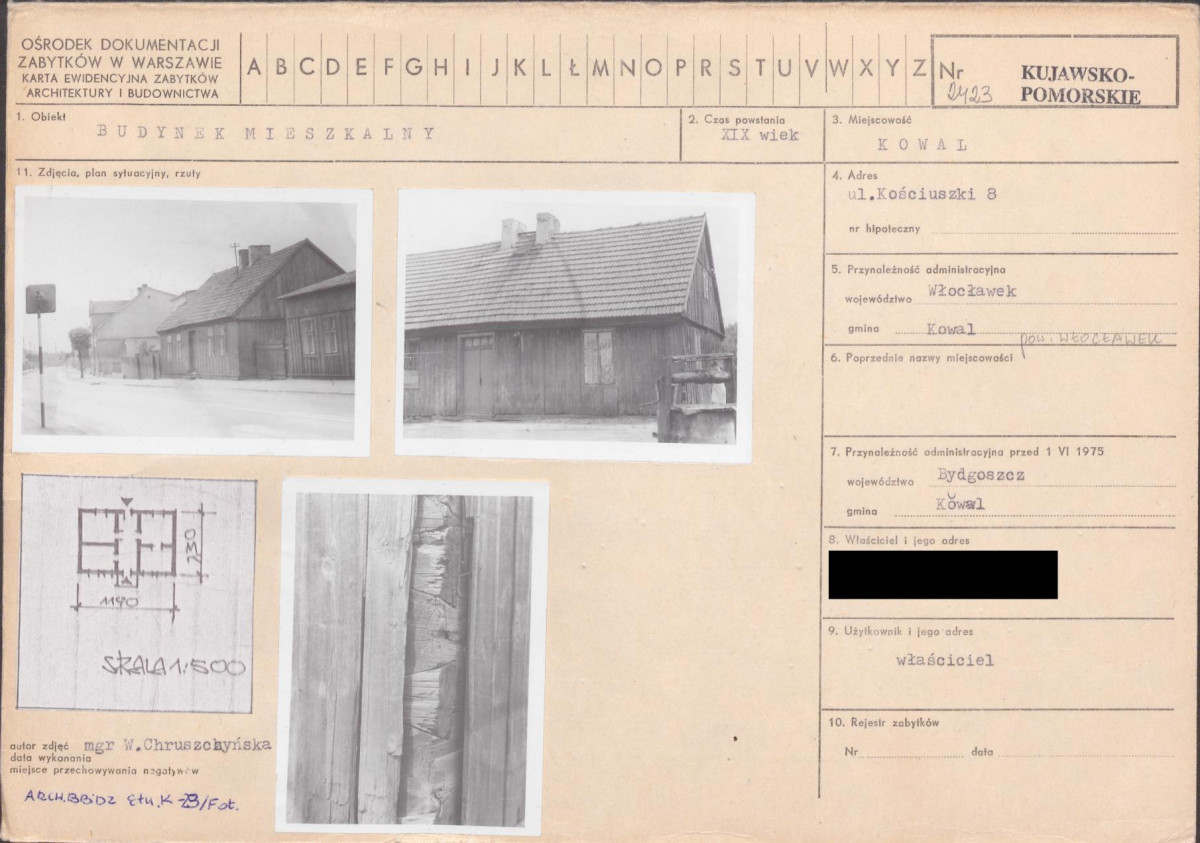 OŚRODEK DOKUMENTACJI
ZABYTKÓW W WARSZAWIE
KARTA EWIDENCYJNA ZABYTKÓW
ARCHITEKTURY I BUDOWNICTWA
A B C D E F G H I J K L Ł M N O P R S T U V W X Y Z
Nr
2423
KUJAWSKO-
POMORSKIE
1. Obiekt
BUDYNEK MIESZKALNY
2. Czas powstania
XIX wiek
3. Miejscowość
KOWAL
11. Zdjęcia, plan sytuacyjny, rzuty
4. Adres
ul.Kościuszki 8
nr hipoteczny
5. Przynależność administracyjna
województwo Włocławek
gmina Kowal
pow. WŁOCŁAWEK
6. Poprzednie nazwy miejscowości
7. Przynależność administracyjna przed 1 VI 1975
województwo Bydgoszcz
gmina Kowal
8. Właściciel i jego adres
9. Użytkownik i jego adres
właściciel
10. Rejestr zabytków
Nr data
1190
SKALA 1:500
autor zdjęć mgr W.Chruszczyńska
data wykonania
miejsce przechowywania negatywów
ARCH.BBiDZ Etu.K-23/Fot.